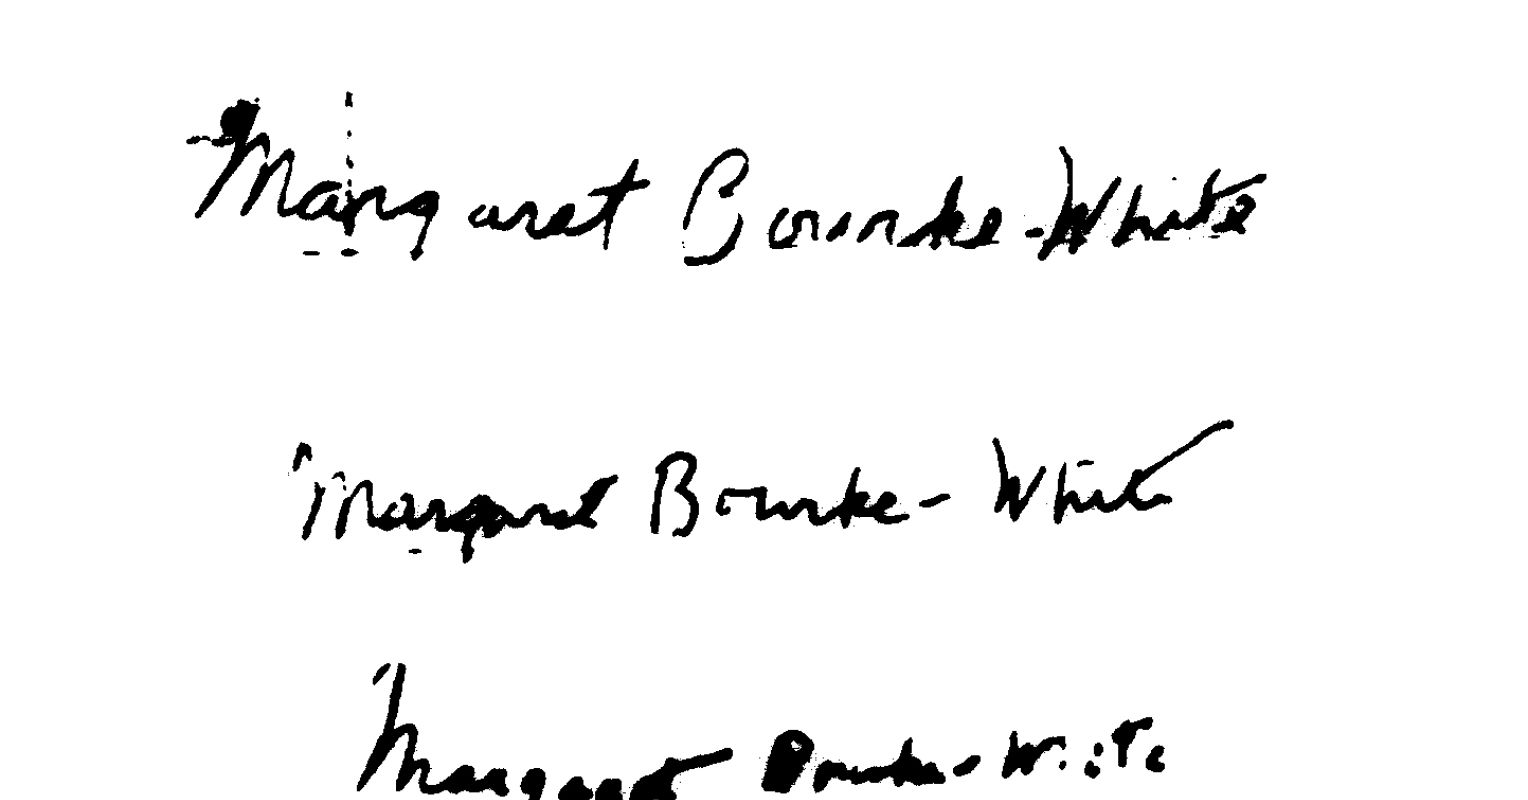 Margaret Bourke-White
Margaret Bourke-White
Margaret Bourke-White